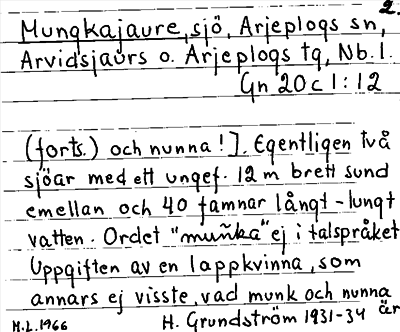 2.
Mungkajaure, sjö, Arjeplogs sn,
Arvidsjaurs o. Arjeplogs tg, Nb. l.
Gn 20 c 1 : 12
(forts.) och nunna !]. Egentligen två
sjöar med ett ungef. 12 m brett sund
emellan och 40 famnar långt - lungt
vatten. Ordet "muŋ̄ka" ej i talspråket
Uppgiften av en lappkvinna, som
annars ej visste, vad munk och nunna
är
H.L. 1966 H. Grundström 1931-34